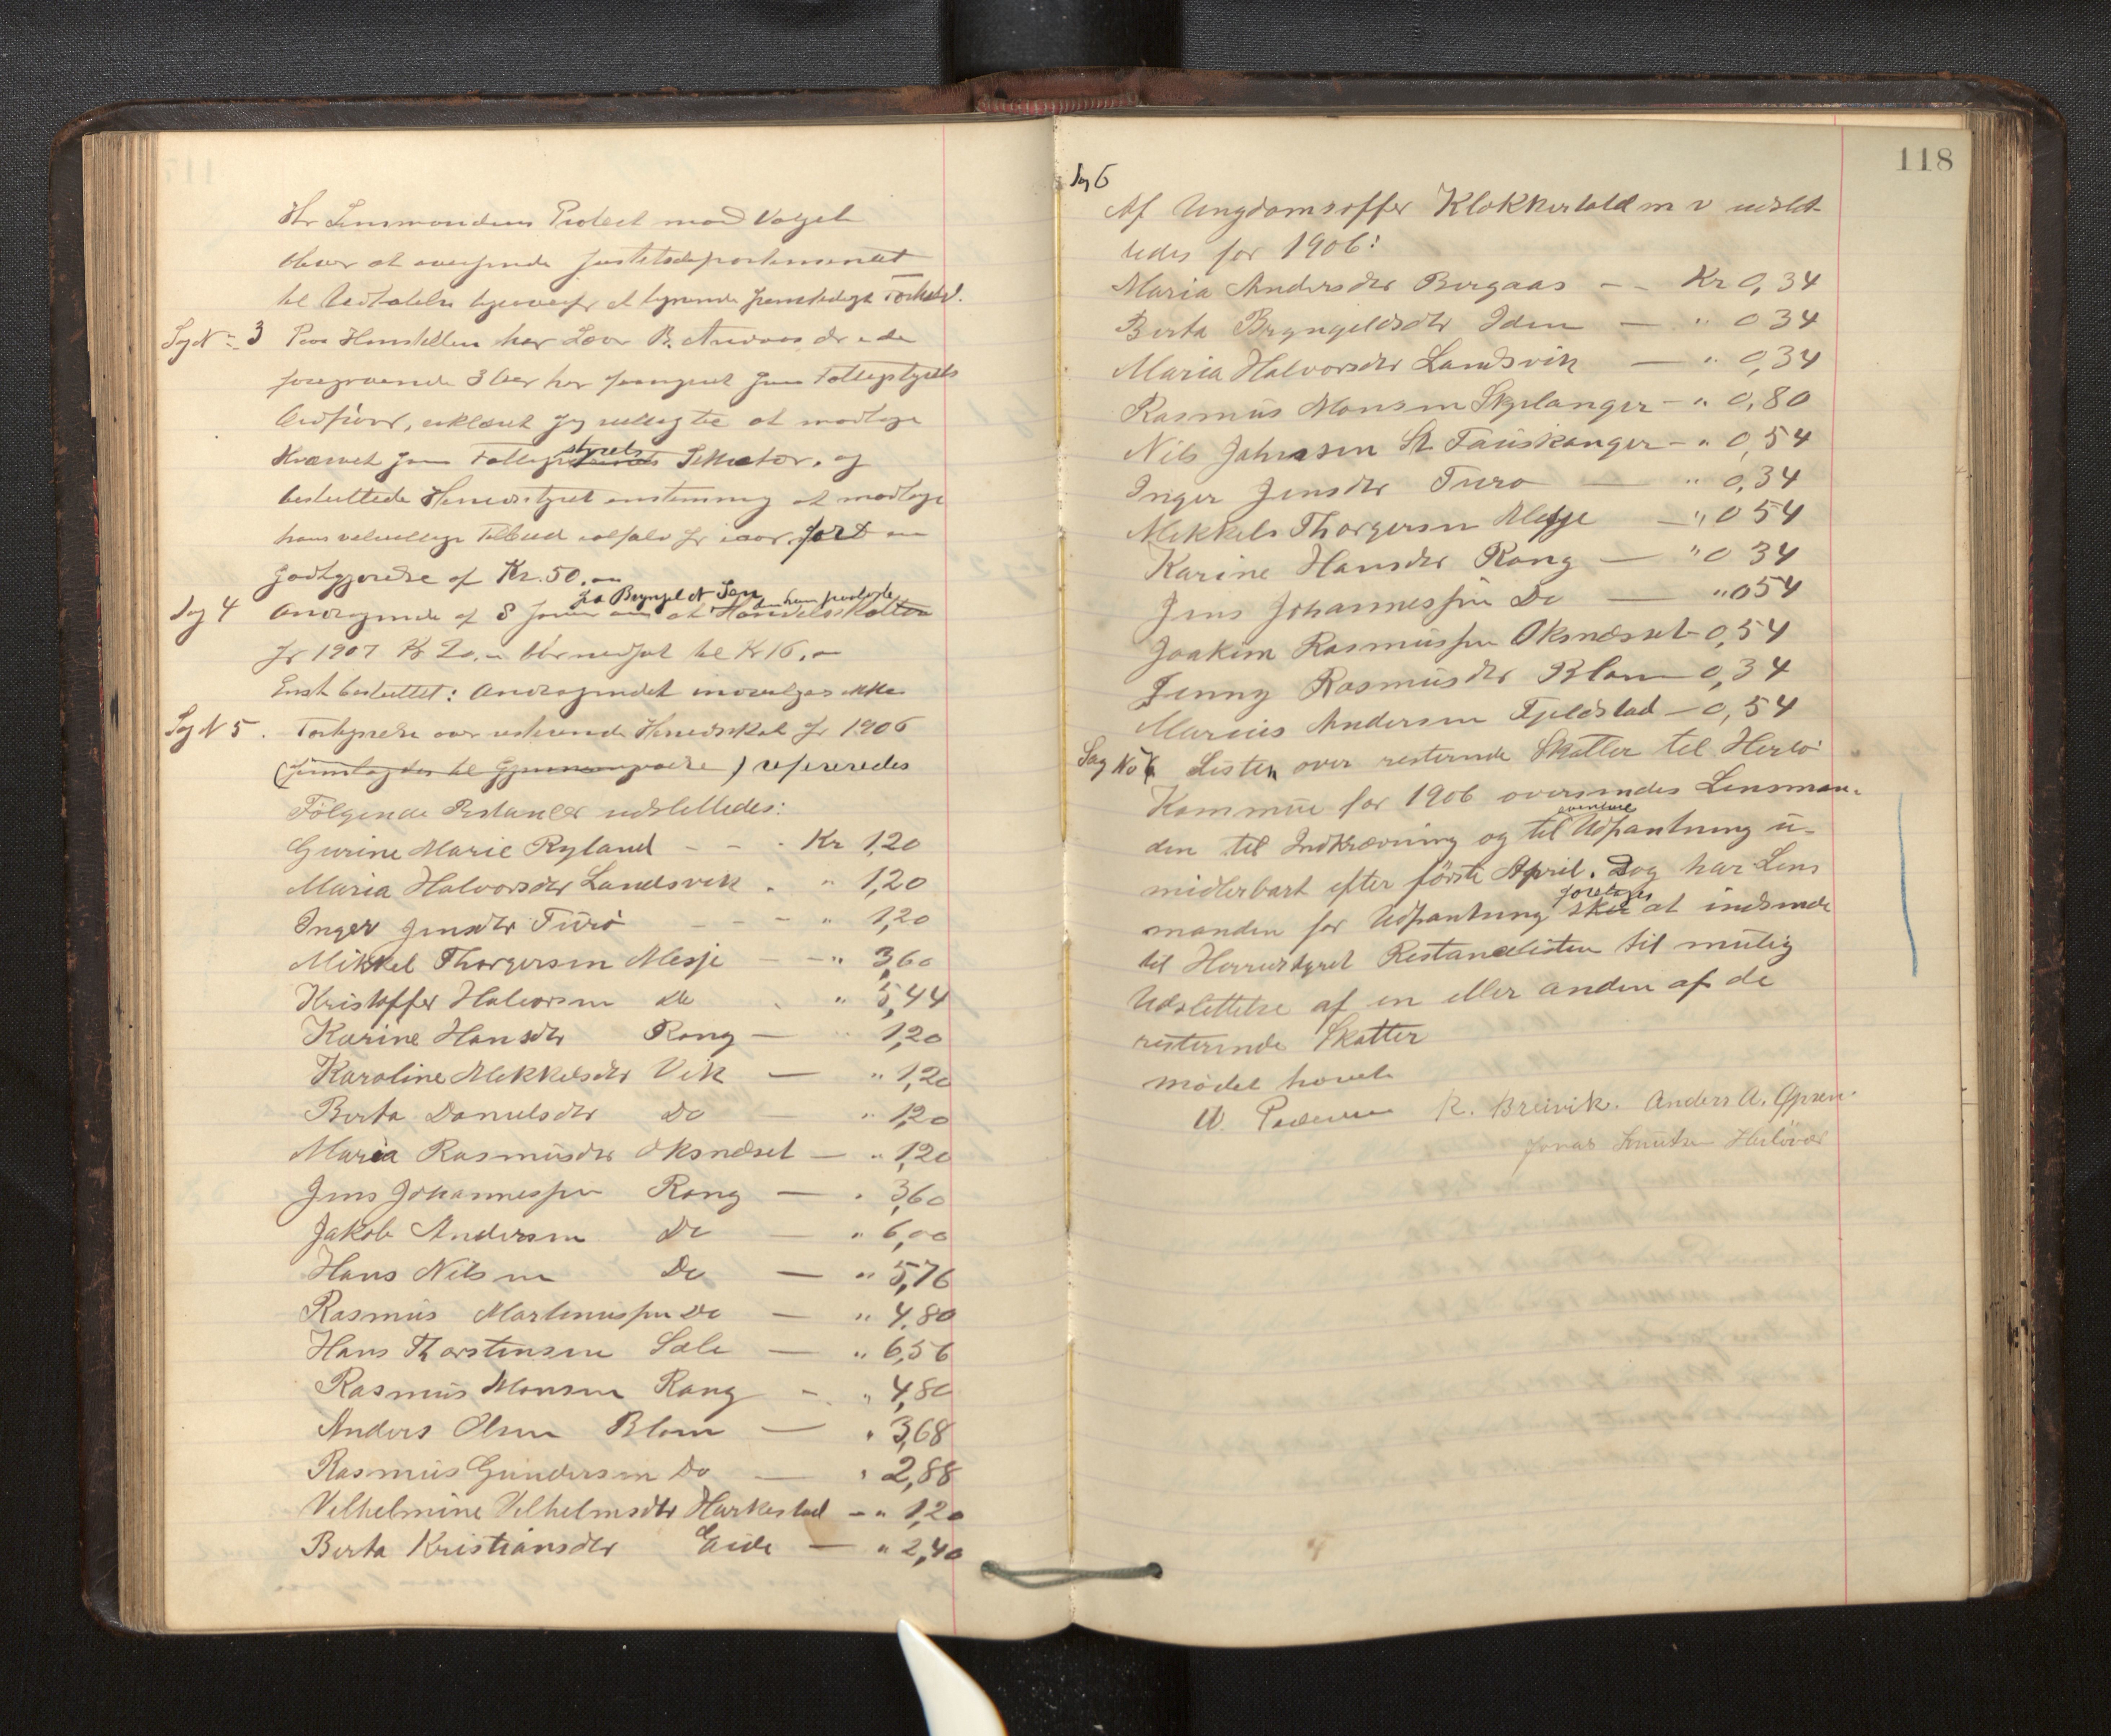 Hr Lensmandens Protest mod Valget
bliver at oversende Justitsdepartementet
til Udtalelse
Sag N: 3 Paa Henstillen har Lærer B. Andaas der i de
foregaaende 3 Aar har fungeret som Fattigstyrets
Ordfører, erklæret sig villig til at modtage
Hvervet som Fattigstyrets Sekretær, og
besluttede Herredstyret enstemmig at modtage
hans velvillige Tilbud ialfald for iaar, mod en
Godtgjørelse af Kr. 50.
fra Bryngel N.
Sag 4 Andragende om at Handelsskatten
for 1907 Kr 20, blir nedsat til Kr 16,
Enst besluttet: Andragendet indvilges ikke
Sag N 5. Fortegnelse over uerholdte Herredsskat for 1906
refereredes
Følgende Restancer udslettedes:
Gurine Marie Ryland - - - Kr 1,20
Maria Halvorsdtr Landsvik . " 1,20
Inger Jensdtr Turø - - " 1,20
Mikkel Thorgersen Mesje - - " 3,60
Kristoffer Halvorsen do . " 5,44
Karine Hansdtr Rong - " 1,20
Karoline Mikkelsdtr Vik - " 1,20
Berta Danielsdtr Do - " 1,20
Maria Rasmusdtr Oksnæset - " 1,20
Jens Johannessen Rong - " 3,60
Jakob Andersen Do - " 6,00
Hans Nilsen Do - " 5,76
Rasmus Martinussen Do - " 4,80
Hans Thorstensen Sæle - " 6,56
Rasmus Monsen Rong - " 4,80
Anders Olsen Blom - " 3,68
Rasmus Gundersen Do - " 2,88
Vilhelmine Vilhelmsdtr Harkestad - " 1,20
Berta Kristiansdtr Eide - " 2,40
118
Sag 6
Af Ungdomsoffer Klokkertold m v udslet-
tedes for 1906:
Maria Andersdtr Bergaas - - Kr 0,34
Berta Bryngeldsdtr Iden - " 0 34
Maria Halvorsdtr Landsvik - " 0,34
Rasmus Monsen Skjelanger - " 0,80
Nils Johnsen St Tauskanger - " 0,54
Inger Jensdtr Turø - " 0,34
Mikkels Thorgersen Mesje - " 0 54
Karine Hansdtr Rong - " 0 34
Jens Johannessen Do - " 0 54
Joakim Rasmussen Oksnæset - 0,54
Jenny Rasmusdtr Blom - 0,34
Marius Andersen Fjeldstad - 0,54
Sag No Listen over resterende Skatter til Herlø
Kommune for 1906 oversendes Lensman-
den til Indkrævning og til eventuel Udpantning u-
midlerbart efter første April. Dog har Lens
manden før Udpantning sker foretages at indsende
til Herredstyret Restancelisten til mulig
Udslettelse af en eller anden af de
resterende Skatter
Mødet hævet
W. Pedersen R. Breivik. Anders A. Gjpsen.
Jonas Knutsen Herløvær